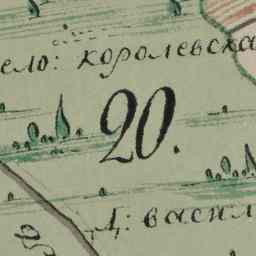 ело: королевска
20.
Д: васил